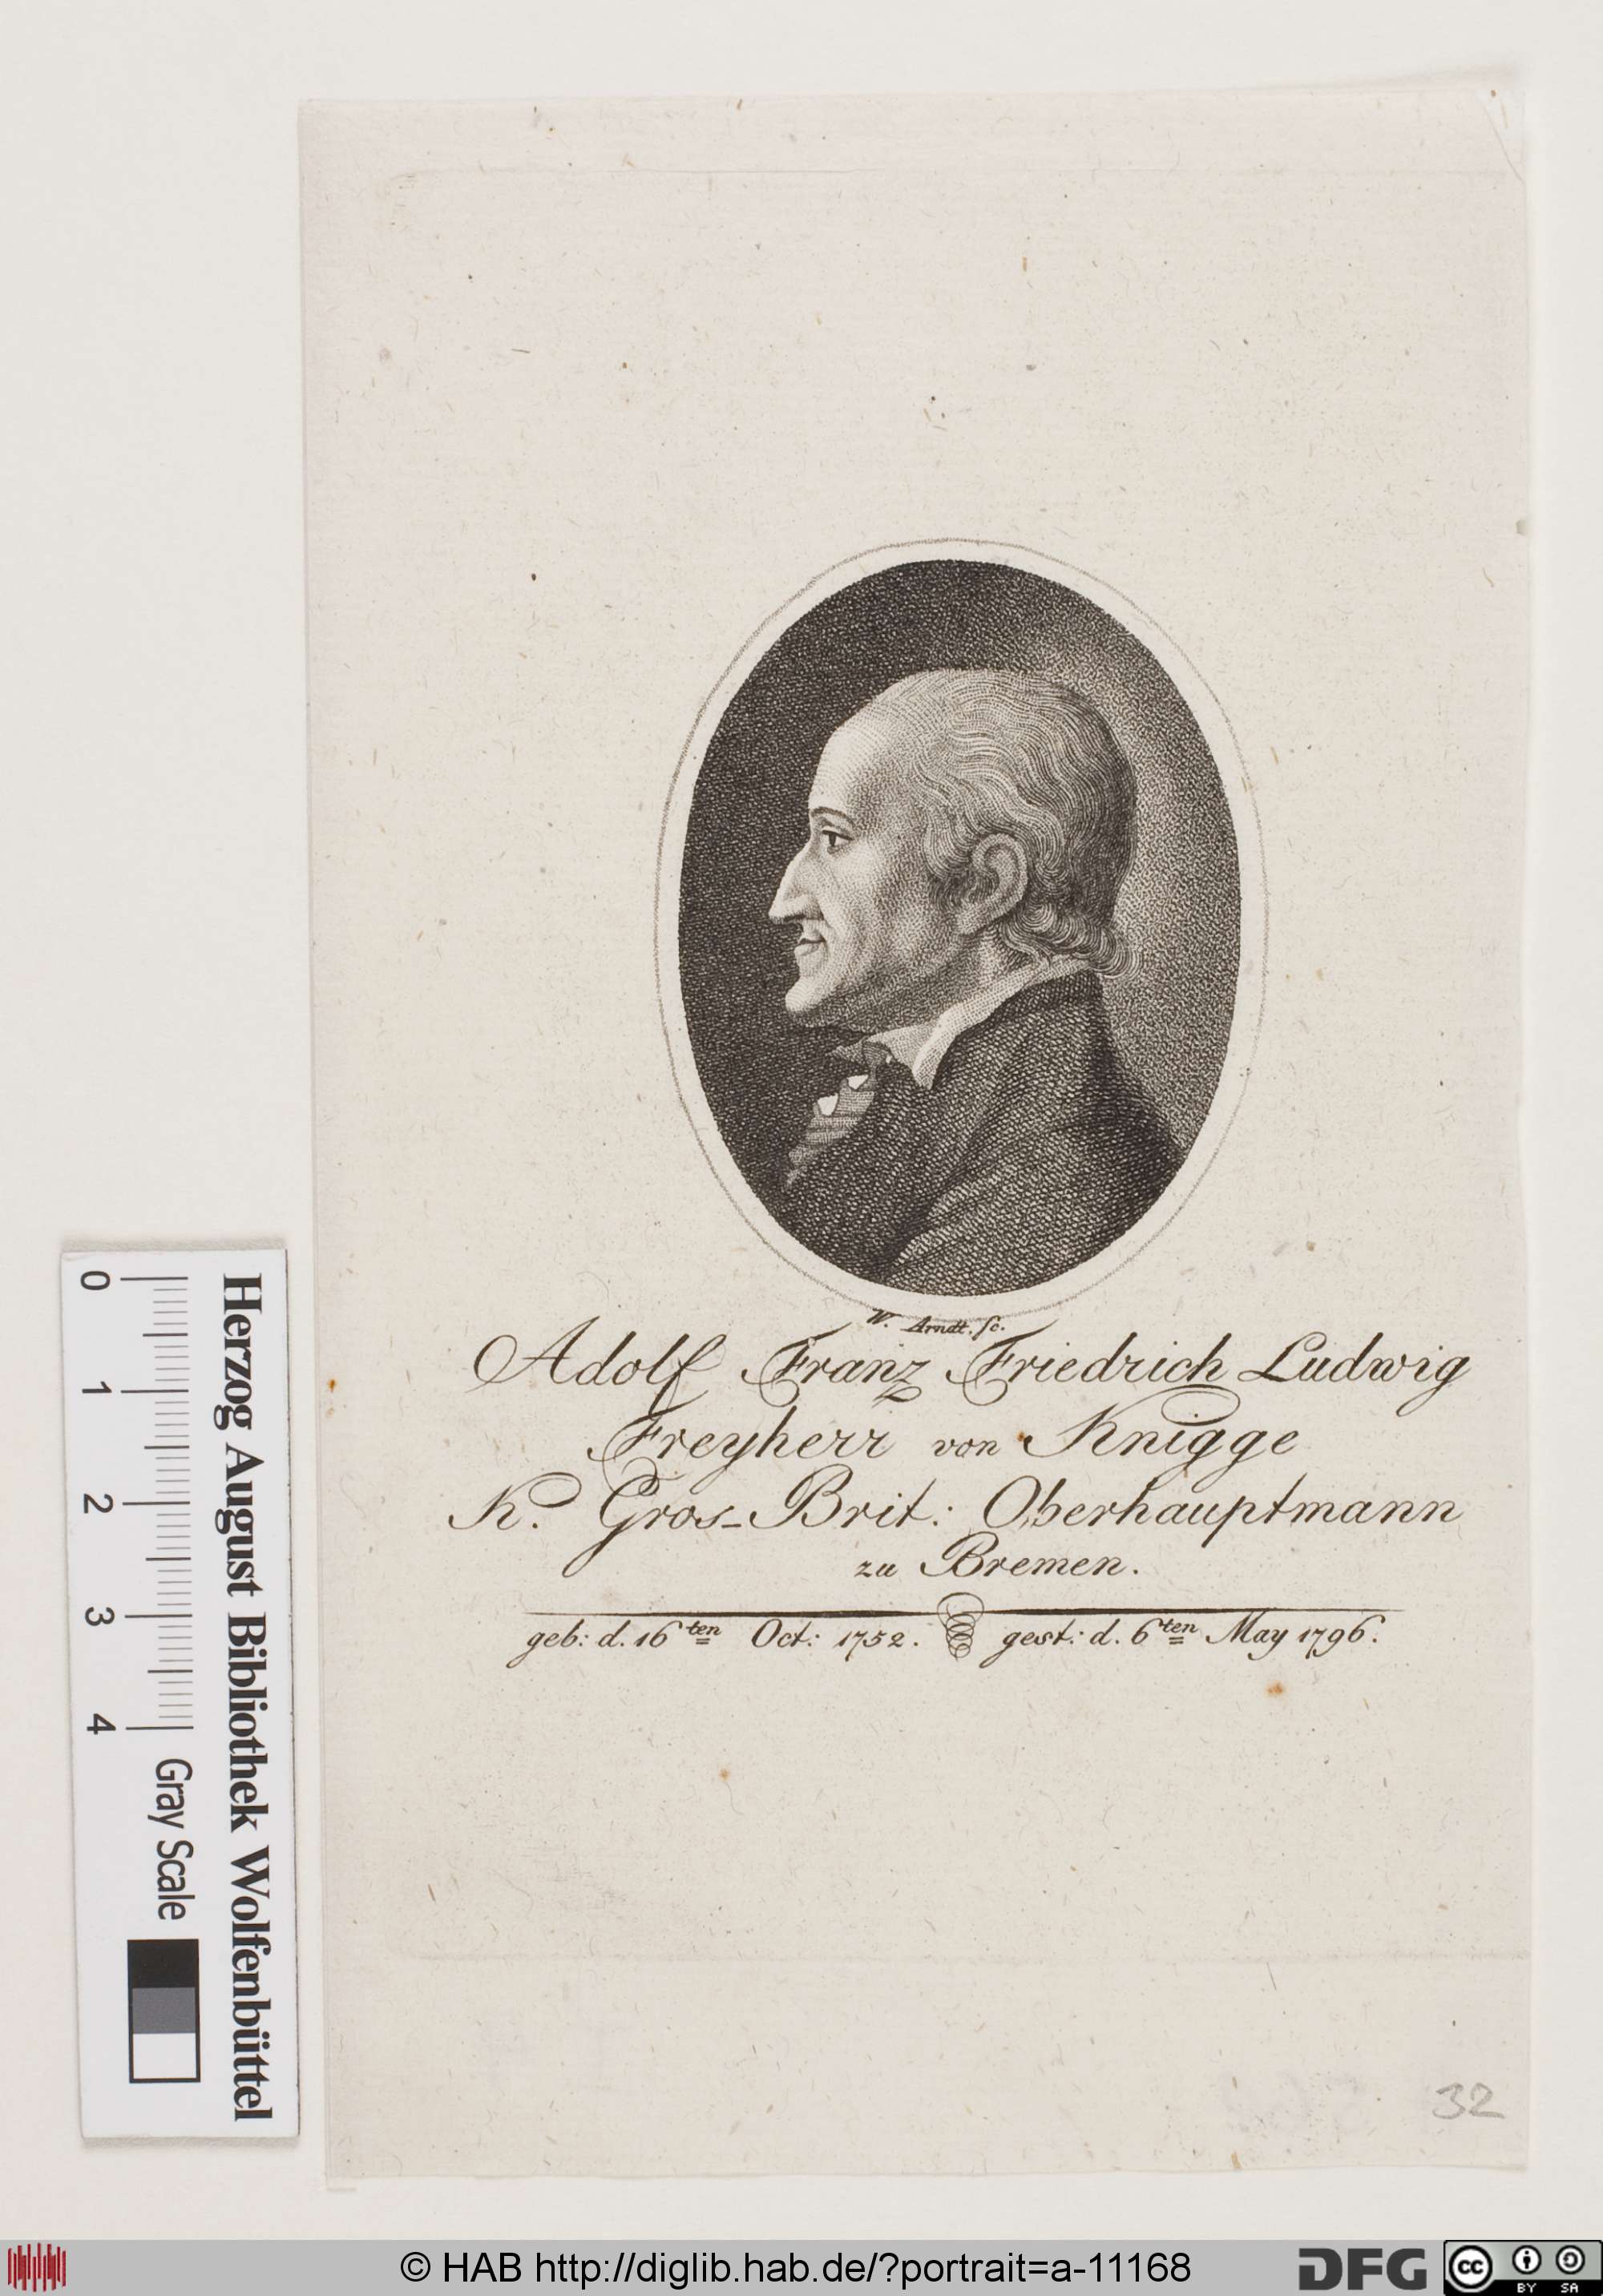 W. Arndt. sc.
Adolf Franz Friedrich Ludwig
Freyherr von Knigge
K. Gros-Brit: Oberhauptmann
zu Bremen.
geb: d. 16ten Oct: 1752. gest: d. 6ten May 1796.
32
Herzog August Bibliothek Wolfenbüttel
0 1 2 3 4 Gray Scale
© HAB http://diglib.hab.de/?portrait=a-11168
DFG
cc BY SA